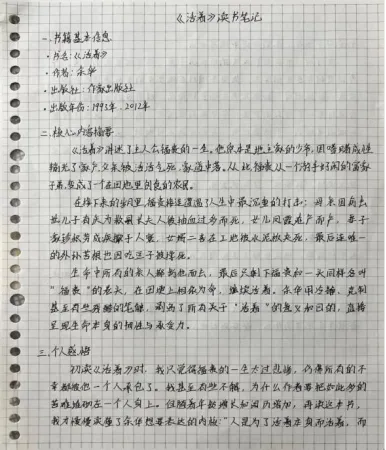 《活着》读书笔记
一.书籍基本信息
·书名:《活着》
·作者:余华
·出版社:作家出版社
·出版年份:1993年.2012年
二.核心内容摘要
《活着》讲述了主人公福贵的一生。他原本是地主家的少爷,因嗜赌成性
输光了家产,父亲被活活气死,家道中落。从此,福贵从一个游手好闲的富家
子弟,变成了个在田地里刨食的农民。
在接下来的岁月里,福贵接连遭遇了人生中最沉重的打击:
儿子有庆为救县长夫人被抽血过多而死,女儿凤霞难产而亡,妻子
家珍积劳成疾撒手人寰,女婿二喜在工地被水泥板夹死,最后连唯一
的外孙苦根也因吃豆子被撑死。
生命中所有的亲人都离他而去,最后只剩下福贵和一头同样名叫
"福贵"的老牛,在田埂上相依为命,继续活着。余华用冷静、克制
甚至有些残酷的笔触,剥离了所有关于"活着"的意义和目的,直接
呈现生命本身的韧性与承受力。
三.个人感悟
初读《活着》时,我只觉得福贵的一生太过悲惨,仿佛所有的不
幸都被他一个人承包了。我甚至有些不解,为什么作者要把如此多的
苦难堆砌在一个人身上。但随着年龄增长和阅历增加,再读这本书,
我才慢慢读懂了余华想要表达的内核:"人是为了活着本身而活着,而